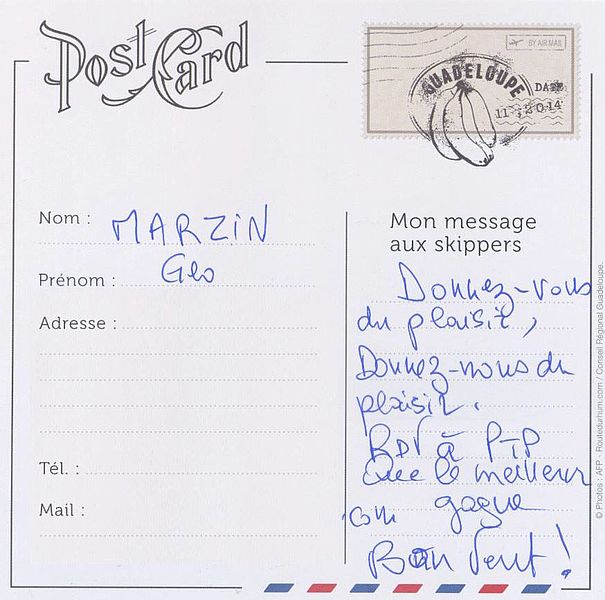 Post Card
BY AIR MAIL
GUADELOUPE
DATE
11 2014
Nom : MARZIN
Prénom : Geo
Adresse :
Tél. :
Mail :
Mon message
aux skippers
Donnez-vous
du plaisir,
Donnez-nous du
plaisir.
RDV à PTP
Que le meilleur
gagne
Bon Vent !
© Photos : AFP - Routedurhum.com / Conseil Régional Guadeloupe.